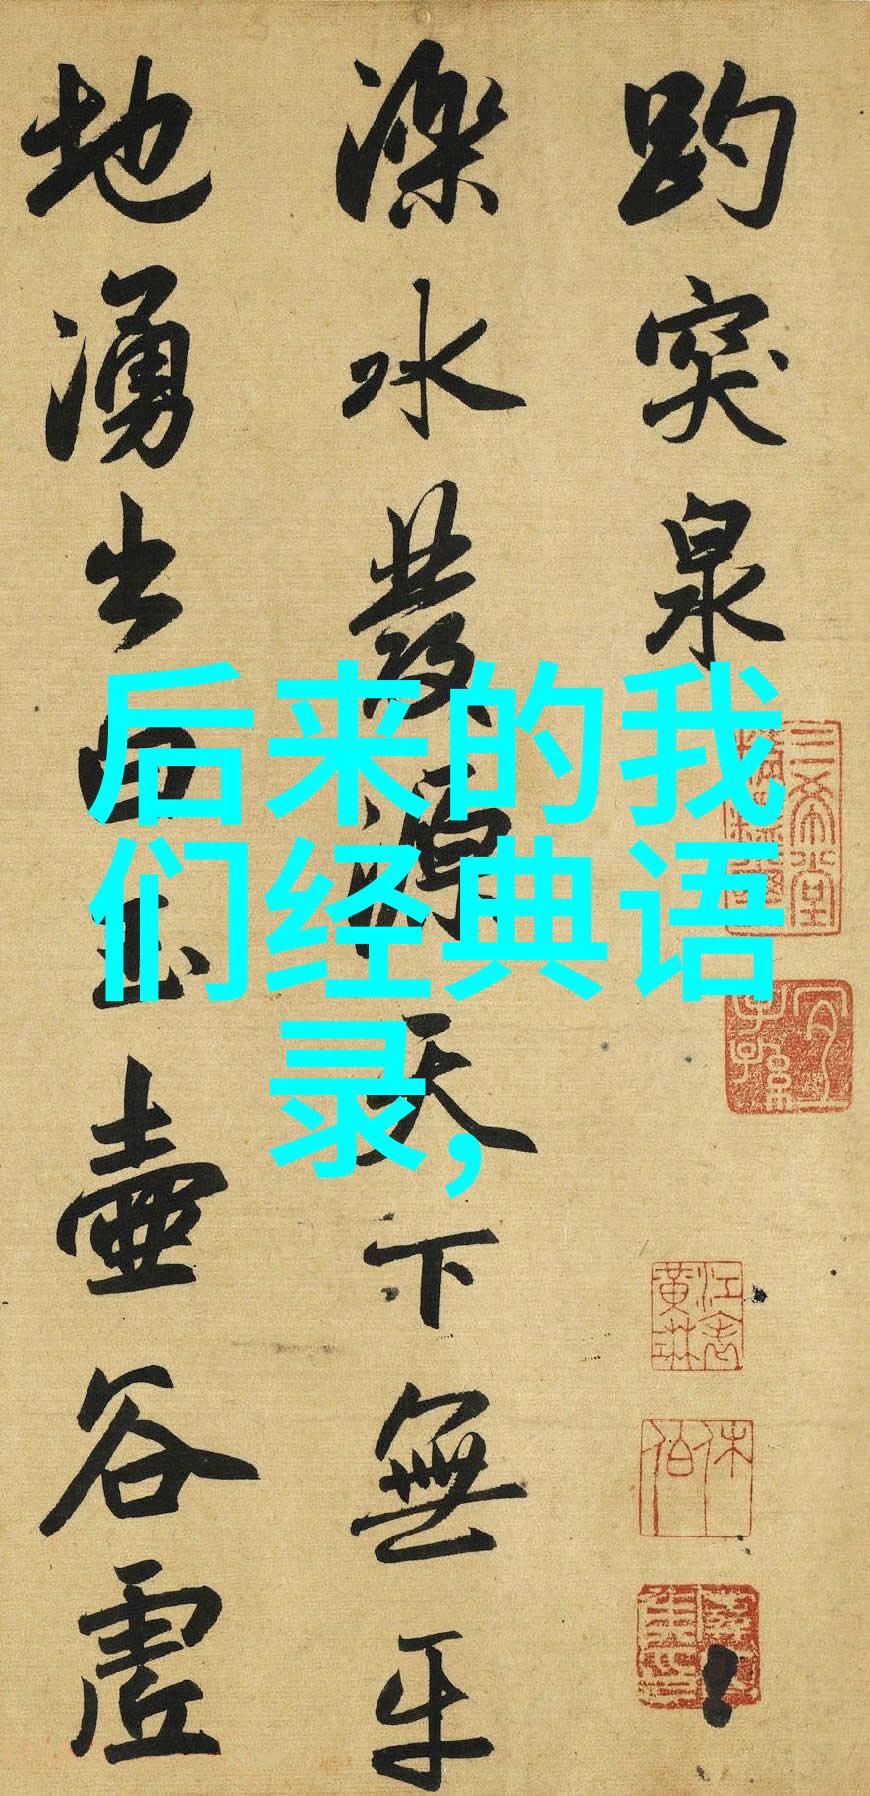 趵突泉
濼水發源天下無
地湧出白玉壺谷虛
后来的我
们经典语
录，